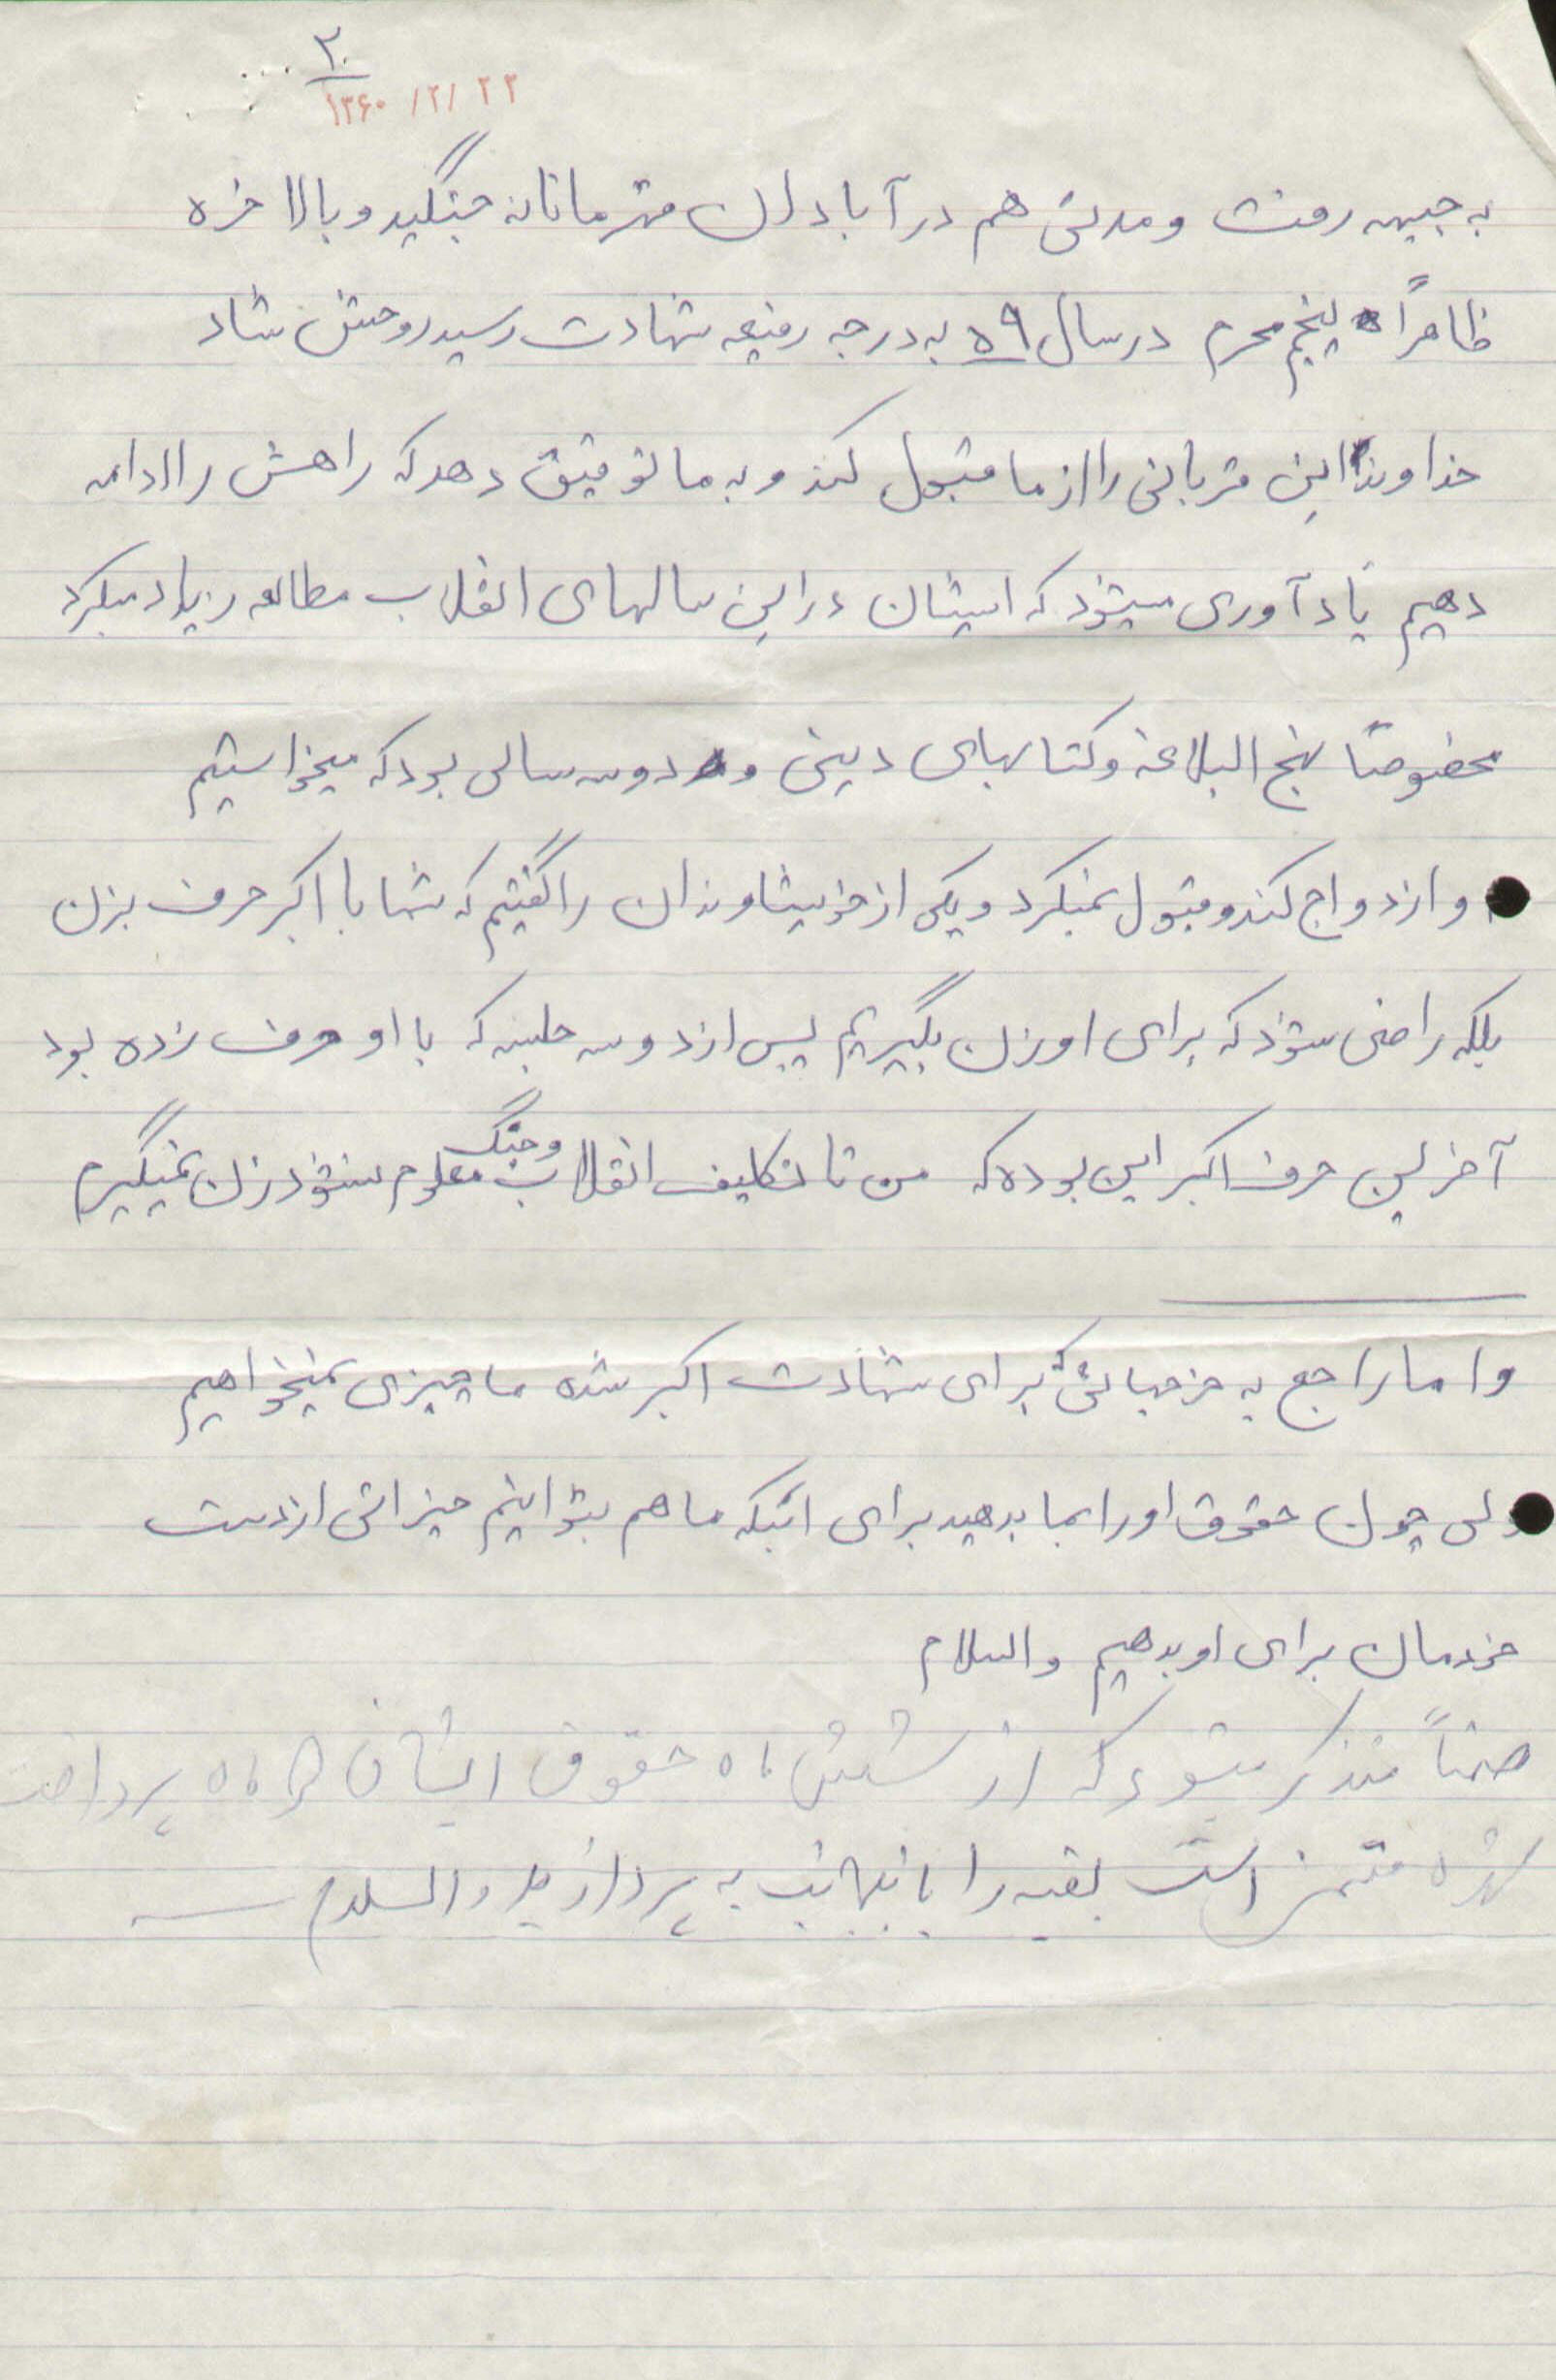 ۲
۱۳۶۰ /۲/ ۲۲
به جبهه رفت و مدتی هم در آبادان قهرمانانه جنگید و بالاخره
ظاهراً پنجم محرم در سال ۵۹ به درجه رفیعه شهادت رسید روحش شاد
خداوند این قربانی را از ما قبول کند و به ما توفیق دهد که راهش را ادامه
دهیم یادآوری میشود که ایشان در این سالهای انقلاب مطالعه زیاد میکرد
مخصوصاً نهج البلاغه و کتابهای دینی و دو سه سالی بود که میخواستیم
و ازدواج کند و قبول نمیکرد و یکی از خویشاوندان را گفتیم که شما با اکبر حرف بزن
بلکه راضی شود که برای او زن بگیریم پس از دو سه جلسه که با او حرف زده بود
آخرین حرف اکبر این بوده که من تا تکلیف انقلاب و جنگ معلوم نشود زن نمیگیرم
و اما راجع به خرجهائی که برای شهادت اکبر شده ما چیزی نمیخواهیم
ولی چون حقوق او را بما بدهید برای اینکه ما هم بتوانیم خیراتی از دست
خودمان برای او بدهیم والسلام
ضمناً متذکر میشود که از شش ماه حقوق ایشان ماه پرداخت
شده متمنی است بقیه را باینجانب به پردازید والسلام